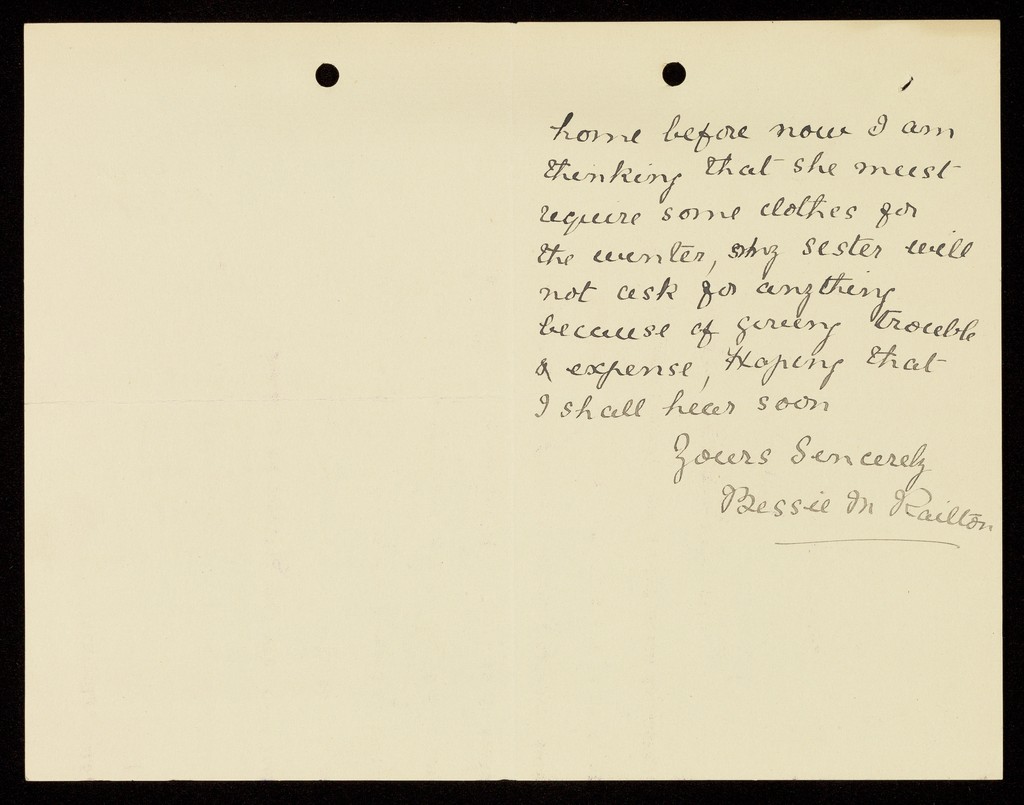 home before now I am
thinking that she must
require some clothes for
the winter, my sister will
not ask for anything
because of giving trouble
& expense, Hoping that
I shall hear soon
Yours Sincerely
Bessie M Railton